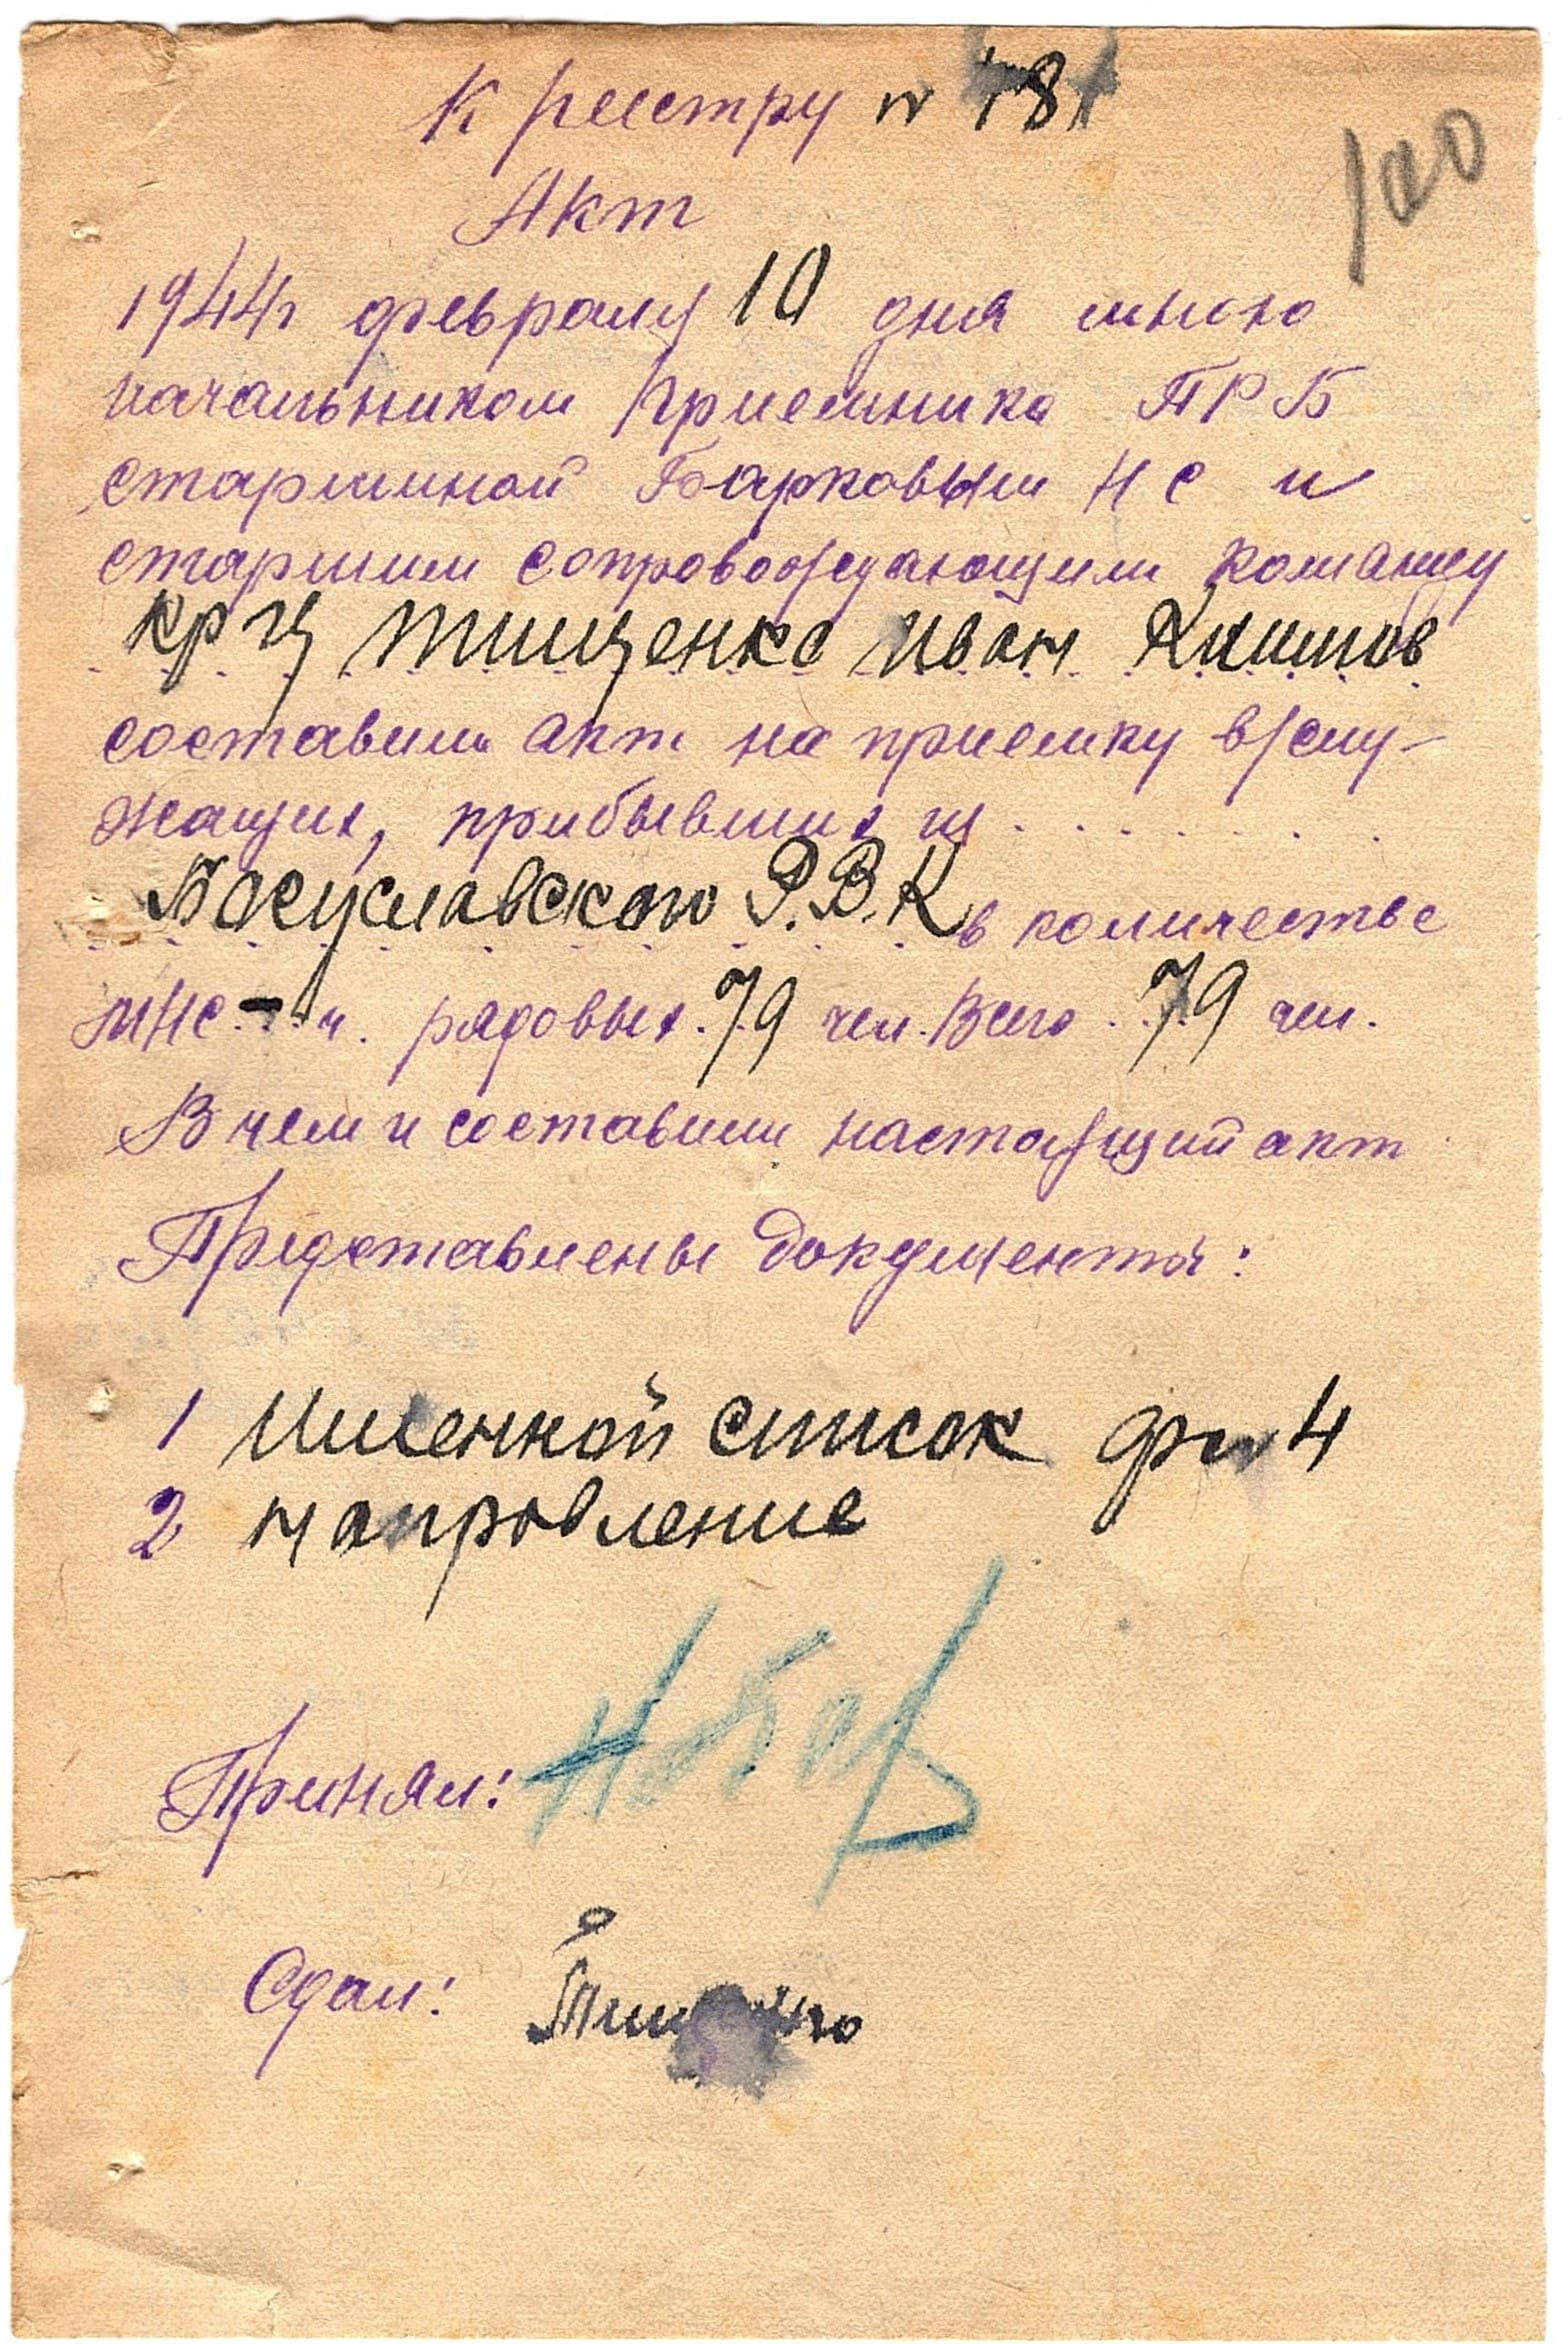 К реестру № 781
100
Акт
1944г февраля 10 дня мною
начальником приемника ПРБ
старшиной Барковым Н С и
старшим сопровождающим команду
кр-ц Тищенко Иван Климов
составили акт на приемку в/слу-
жащих, прибывших из . . . . . . .
Богуславского Р.В.К в количестве
МНС - ч. рядовых 79 чел. Всего 79 чел.
В чем и составили настоящий акт
Предоставлены документы:
1 Именной список ф№4
2 направление
Принял:
Сдал: Тищенко